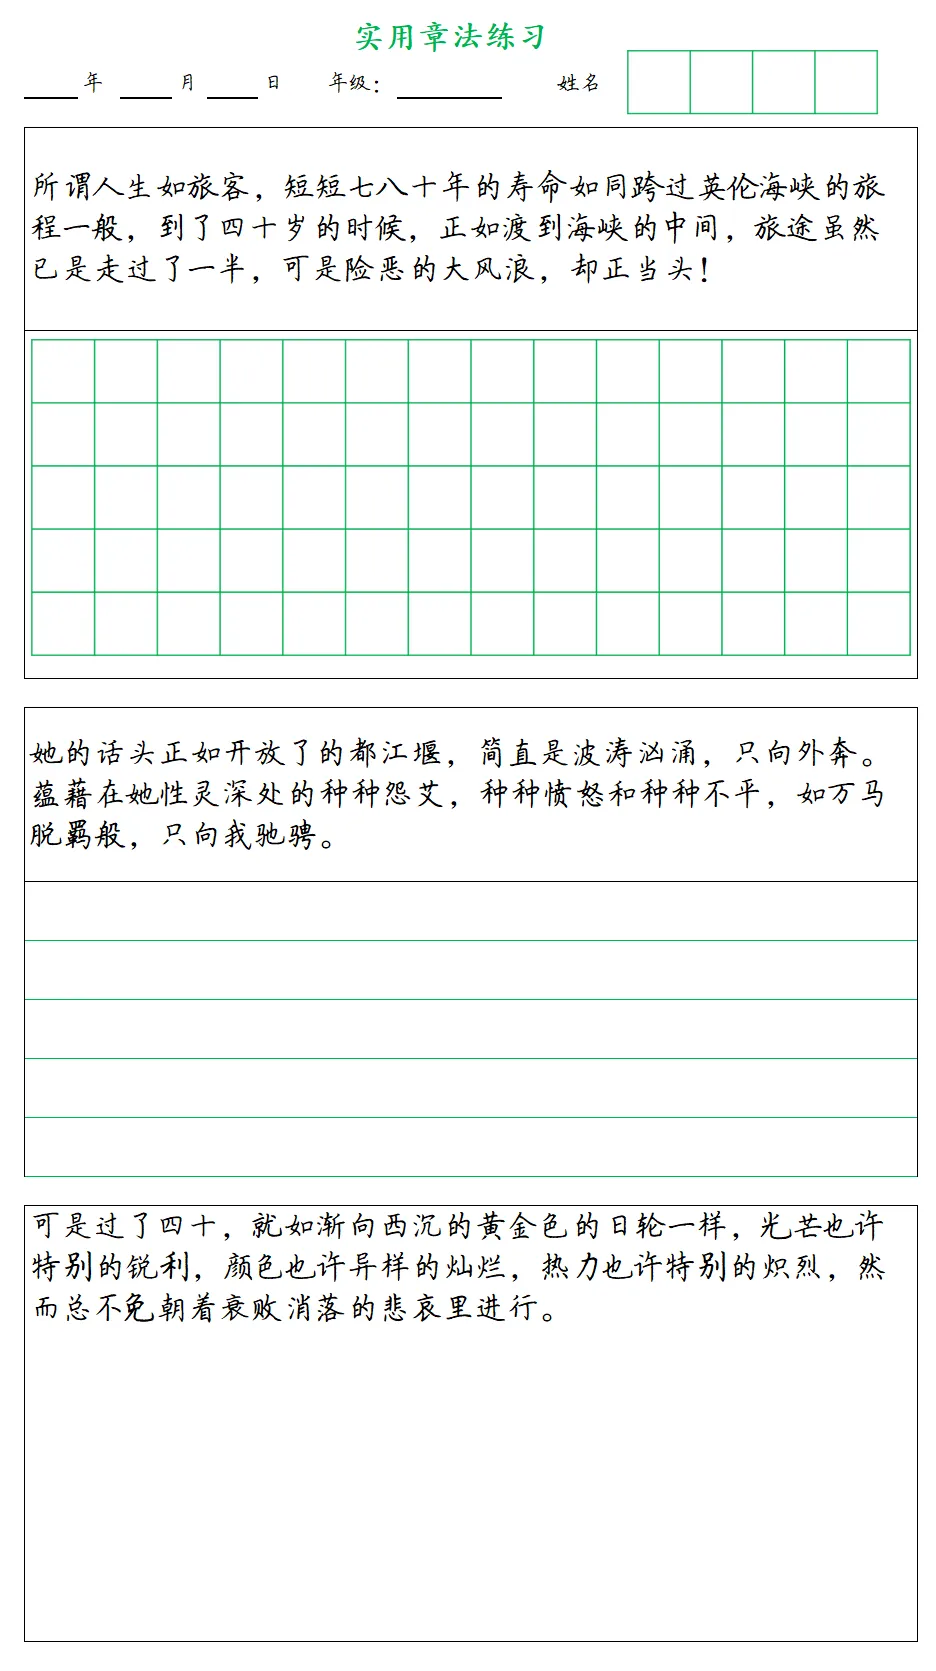 实用章法练习
年 月 日 年级： 姓名
所谓人生如旅客，短短七八十年的寿命如同跨过英伦海峡的旅
程一般，到了四十岁的时候，正如渡到海峡的中间，旅途虽然
已是走过了一半，可是险恶的大风浪，却正当头！
她的话头正如开放了的都江堰，简直是波涛汹涌，只向外奔。
蕴藉在她性灵深处的种种怨艾，种种愤怒和种种不平，如万马
脱羁般，只向我驰骋。
可是过了四十，就如渐向西沉的黄金色的日轮一样，光芒也许
特别的锐利，颜色也许异样的灿烂，热力也许特别的炽烈，然
而总不免朝着衰败消落的悲哀里进行。